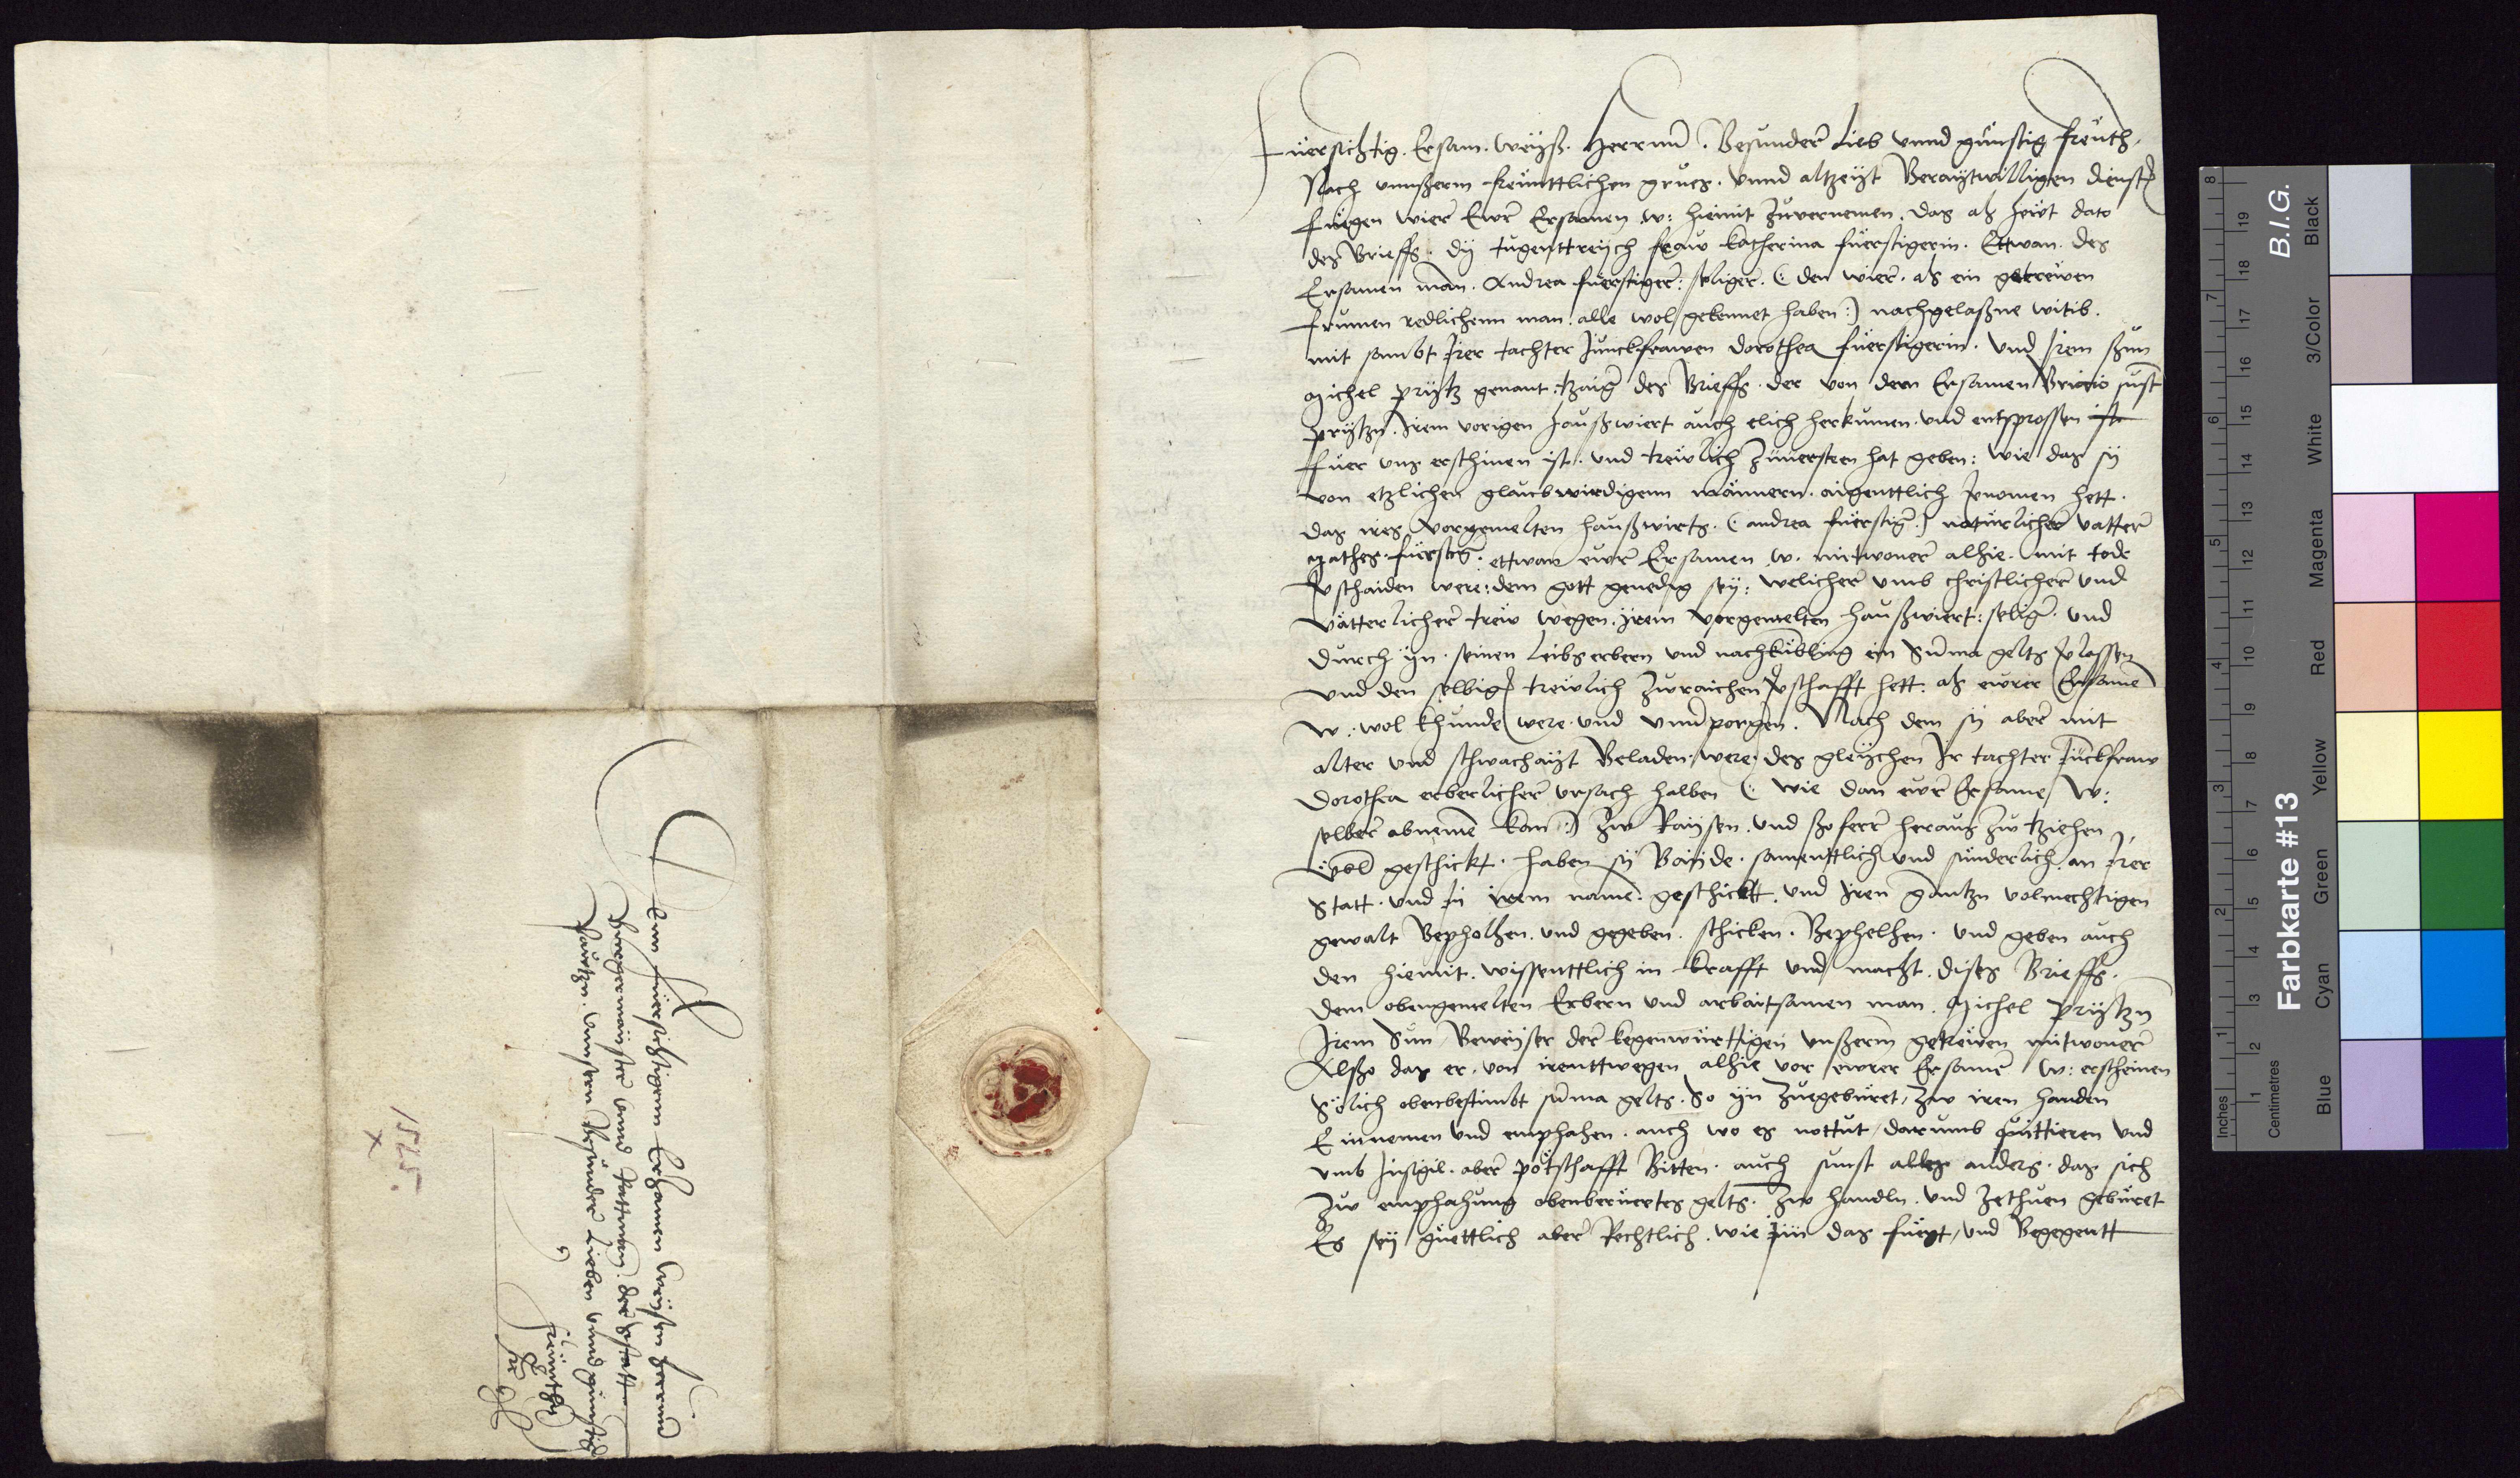 Fuersichtig. Ersam. weyß. Herrnn. Besunder Lieb vnnd günstig freünth,
Nach vnnßerm freünttlichen grues. vnnd altzeyt Beraytwilligen dienste
fuegen wier Ewr Ersamen w: hiemit züvernemen. das als heüt dato
des Brieffs. dy tugenttreych fraw katherina fuerstigerin. Ettwan des
Ersamen man. Andrea fuerstiger: seliger. (: den wier. als ein getreüwen
frumen redlichenn man. alle wol gekennet haben :) nachgelaßne witib.
mit sambt Irer tachter Junckfrawen dorothea fuerstigerin. Vnd Irem sun
Michel prystz genant. tzaiger des Brieffs. der von dem Ersamen Briccio sunst
prystzn. Irem vorigen haußwiert auch elich herkumen. vnd entsprossen ist
fuer vns erschinen ist. vnd treülich züuersteen hat geben: wie das sy
von etzlichen glaubwirdigenn männern. aigenttlich vernomen hett.
das ires vorgemelten haußwirts. (: andrea fuerstiger :) natürlicher vatter
Mathes. fuerstiger. ettwan ewr Ersamen w. mitwoner alhie. mit tode
verschaiden were: dem gott genedig sey: welicher vmb christlicher vnd
vätterlicher trew wegen. Irem vorgemelten haußwiert: seliger. vnd
durch yn. seinen Leibs erbern vnd nachkübling ein Summa gelts verlassen
vnd den selbigen treülich zwraichen verschafft hett. als ewrer Ersamen
w. wol khunde were. vnd vnuerporgen. Nach dem sy aber mit
alter vnd schwachayt Beladen were. des gleychen Ir tachter Junckfraw
dorothea erberlicher vrsach halben (: wie dan ewr Ersame W:
selber abnemen kan :) zw Raysen. vnd ßo ferr heraus zw tziehen
übel geschickt. haben sy Bayde. samenttlich vnd sunderlich an Irer
Statt. vnd in irem namen. geschickt. vnd Iren gantzn volmechtigen
gewalt Bepholhen. vnd gegeben. schicken. Bephelhen. vnd geben auch
den hiemit. wissenttlich in krafft vnd macht. dises Brieffs.
dem obengemelten Erbern vnd arbaitsamen man. Michel prystzn
Irem Sun Beweyser der kegenwürttigen vnßerm getreüen mitwoner
Alßo das er. von irenttwegen alhie vor ewrer Ersamen W: erscheinen
Sölich obenbestimbt summa gelts. So yn zuegebüret, zw iren handen
Einnemen vnd emphahen. auch wo es nottut, darumb quittieren vnd
vmb Insigil. aber pötschafft Bitten. auch sunst alles anders. das sich
zw emphahung obenberüertes gelts. zw handln. vnd zethuen gebüret
Es sey güettlich aber Rechtlich. wie im das fuegt, vnd Begegentt
Den fuersichtigenn Ersamen weysen herrnn
Burgermaister vnnd Rattmanen. der Statt
vnnsern Besunder Lieben vnnd günstigen
freünthen
1525.
x
Inches
Centimetres
1 2 3 4 5 6 7 8
1 2 3 4 5 6 7 8 9 10 11 12 13 14 15 16 17 18 19
Farbkarte #13
B.I.G.
Blue Cyan Green Yellow Red Magenta White 3/Color Black